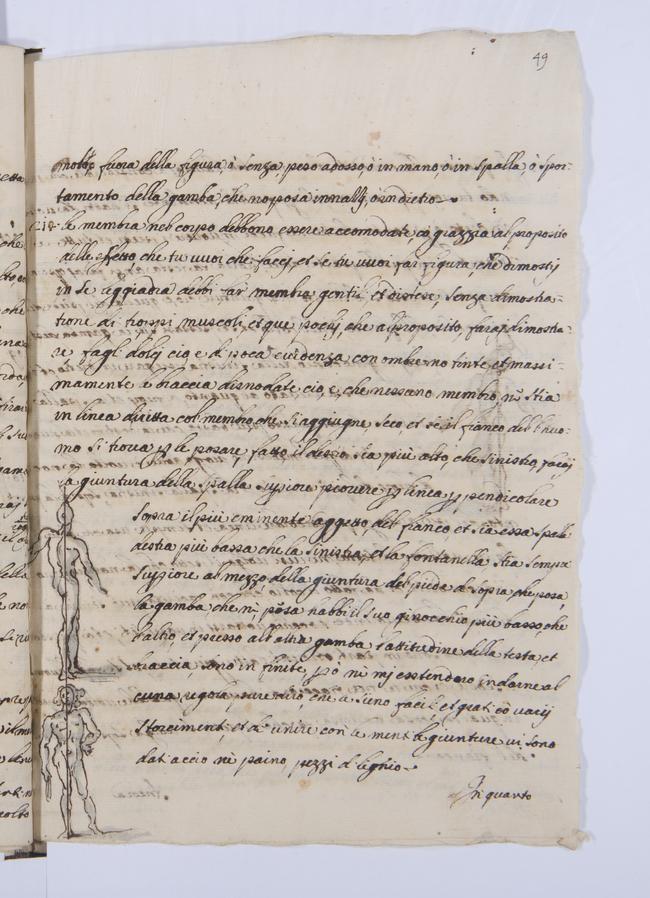 49
molte fuora della figura, ò senza, peso adosso, ò in mano ò in spalla, ò spor-
tamento della gamba, che no posa innazj, ò indietro
le membra nel corpo debbono essere accomodate, cō grazzia al proposito
delle effetto che tu vuoi che faccj, et se tu vuoi far figura, che dimostrj
in se leggiadria debbi far membra gentili et distese, senza dimostra-
tione di troppi muscoli, et que, pochj, che a proposito, faraj dimostra-
re fagli dolcj cio e di poca evidenza con ombre no tinte, et massi-
mamente le braccia disnodate cio, e, che nessuno membro, nō stia
in linea diritta col membro, che si aggiugne, seco, et se il fianco dell huo-
mo si trova, p le posare, fatto il destro, sia più alto, che sinistro, facij
la giuntura della spalla supiore piovere p linea ppendicolare
sopra il più eminente aggetto del fianco et sia essa spalla
destra più bassa che la sinistra, et la fontanella stia sempre
supiore al mezzo della giuntura del piede di sopra che posa,
la gamba che nō posa habbi il suo ginocchio più basso, che
l'altro, et presso all altra gamba l'attitudine della testa et
braccia, sono in finite, pò nō mj esstendero in darne al
cuna, regola, pure dirò, che, sieno facili, et grati cō varij
storcimenti et
dati accio nō paino, pezzi di legnio
In quanto